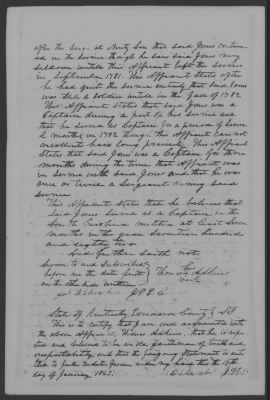 after the seige at Ninty Six that said Jones continu-
ed in the service though he saw said Jones very
seldom untill this Affiant left the service
in September 1781. This Affiant states after
he had quit the service entirely that said Jones
was still a soldier untill in the fall of 1782
This Affiant states that said Jones was a
Captain during a part to his service and
that he served as Captain for a period of seven
months in 1782 though this Affiant can not
recollect how long precisely. This Affiant
states that said Jones was a Captain for three
months during the time that Affiant was
in service with said Jones and that he was
once or twice a Sergeant during said
service
This Affiant states that he believes that
said Jones served as a Captain in the
South Carolina militia at least seven
months in the year seventeen hundred
and eighty two
And further saith not
Sworn to and subscribed
before me the date first Thomas Adkins
on the other side written mark
J.P.L.C.
State of Kentucky Lawrence County SS
This is to certify that I am well acquainted with
the above Affiant, Thomas Adkins, that he is repu-
ted and believed to be an old gentleman of truth and
respectability, and that the foregoing statement is enti-
tled to full credit. Given under my hand this the
day of January 1842.